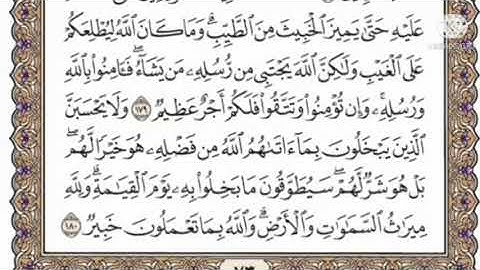 عَلَيْهِ حَتَّىٰ يَمِيزَ الْخَبِيثَ مِنَ الطَّيِّبِ ۗ وَمَا كَانَ اللَّهُ لِيُطْلِعَكُمْ
عَلَى الْغَيْبِ وَلَٰكِنَّ اللَّهَ يَجْتَبِي مِن رُّسُلِهِ مَن يَشَاءُ ۖ فَآمِنُوا بِاللَّهِ
وَرُسُلِهِ ۚ وَإِن تُؤْمِنُوا وَتَتَّقُوا فَلَكُمْ أَجْرٌ عَظِيمٌ ١٧٩ وَلَا يَحْسَبَنَّ
الَّذِينَ يَبْخَلُونَ بِمَا آتَاهُمُ اللَّهُ مِن فَضْلِهِ هُوَ خَيْرًا لَّهُم ۖ
بَلْ هُوَ شَرٌّ لَّهُمْ ۖ سَيُطَوَّقُونَ مَا بَخِلُوا بِهِ يَوْمَ الْقِيَامَةِ ۗ وَلِلَّهِ
مِيرَاثُ السَّمَاوَاتِ وَالْأَرْضِ ۗ وَاللَّهُ بِمَا تَعْمَلُونَ خَبِيرٌ ١٨٠
٧٣